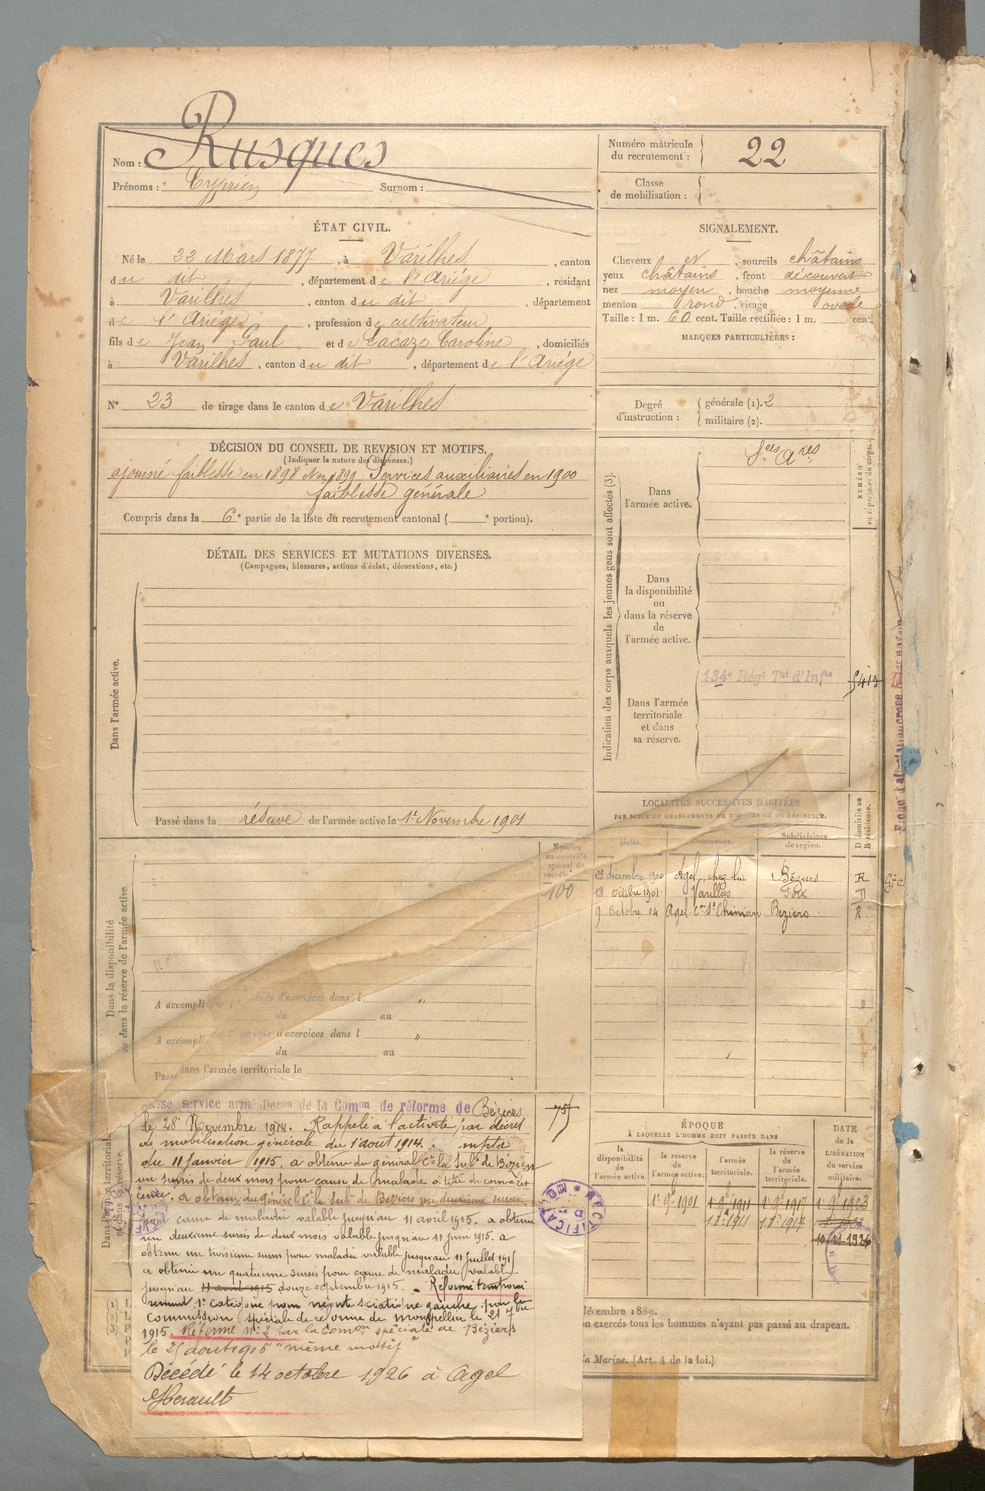 Nom : Rusques
Prénoms : Cyprien Surnom :
Numéro matricule du recrutement : 22
Classe de mobilisation :
ÉTAT CIVIL.
Né le 22 Mars 1877, à Varilhes, canton
du dit, département de l'Ariége, résidant
à Varilhes, canton du dit, département
de l'Ariége, profession de cultivateur
fils de Jean Paul et de Lacaze Caroline, domiciliés
à Varilhes, canton du dit, département de l'Ariége
N° 23 de tirage dans le canton de Varilhes
SIGNALEMENT.
Cheveux et, sourcils châtains
yeux châtains, front découvert
nez moyen, bouche moyenne
menton rond, visage ovale
Taille : 1 m. 60 cent. Taille rectifiée : 1 m. cent.
MARQUES PARTICULIÈRES :
Degré d'instruction : générale (1). 2
militaire (2).
DÉCISION DU CONSEIL DE REVISION ET MOTIFS.
(Indiquer la nature des dispenses.)
ajourné faiblesse en 1898 1899 Services auxiliaires en 1900
faiblesse générale
Compris dans la 6e partie de la liste du recrutement cantonal ( e portion).
DÉTAIL DES SERVICES ET MUTATIONS DIVERSES.
(Campagnes, blessures, actions d'éclat, décorations, etc.)
Dans l'armée active.
Passé dans la réserve de l'armée active le 1er Novembre 1901
Indication des corps auxquels les jeunes gens sont affectés (3).
NUMÉRO
au répertoire du corps.
Dans
l'armée active.
Sces Ares
Dans
la disponibilité
ou
dans la réserve
de
l'armée active.
Dans l'armée
territoriale
et dans
sa réserve.
134e Régt Tal d'Infie
LOCALITÉS SUCCESSIVES HABITÉES
PAR SUITE DE CHANGEMENTS DE DOMICILE OU DE RÉSIDENCE.
Dates. Communes. Subdivisions de région. D domicile ou R résidence.
décembre 1900 Agel, chez lui Béziers R
octobre 1901 Varilhes Foix
9 Octobre 04 Agel con St Chinian Beziers R
Dans la disponibilité
ou dans la réserve de l'armée active.
100
A accompli d'exercices dans l
du au
A accompli d'exercices dans l
du au
Passé dans l'armée territoriale le
Passé service armé Décon de la Comon de réforme de Béziers
le 28 Novembre 1914. Rappelé à l'activité par décret
de mobilisation générale du 1 aout 1914.
du 11 janvier 1915. a obtenu du général Ct la Subn de Béziers
un sursis de deux mois pour cause de maladie à titre de convales
cence. a obtenu du général Ct la Subn de Beziers un deuxieme sursis
pour cause de maladie valable jusqu'au 11 avril 1915. a obtenu
un deuxieme sursis de deux mois valable jusqu'au 11 juin 1915. a
obtenu un troisieme sursis pour maladie valable jusqu'au 11 juillet 1915
a obtenu un quatrieme sursis pour cause de maladie valable
jusqu'au 11 aout 1915 douze septembre 1915. - Réformé tempora
rement 1e catégorie pour sciatique gauche par la
commission spéciale de réforme de Montpellier le 21
1915. Réformé No 2 par la Comon spéciale de Béziers
le 1915 "même motif"
Décédé le 14 octobre 1926 à Agel
Hérault
75
RECTIFICATION
ÉPOQUE
À LAQUELLE L'HOMME DOIT PASSER DANS
la disponibilité de l'armée active.
la réserve de l'armée active.
l'armée territoriale.
la réserve de l'armée territoriale.
DATE de la LIBÉRATION du service militaire.
1er 9bre 1901 1er 9bre 1911 1er 9bre 1917
1911 1917
10-11-1926
décembre 1889.
on exercés tous les hommes n'ayant pas passé au drapeau.
la Marine. (Art. 4 de la loi.)